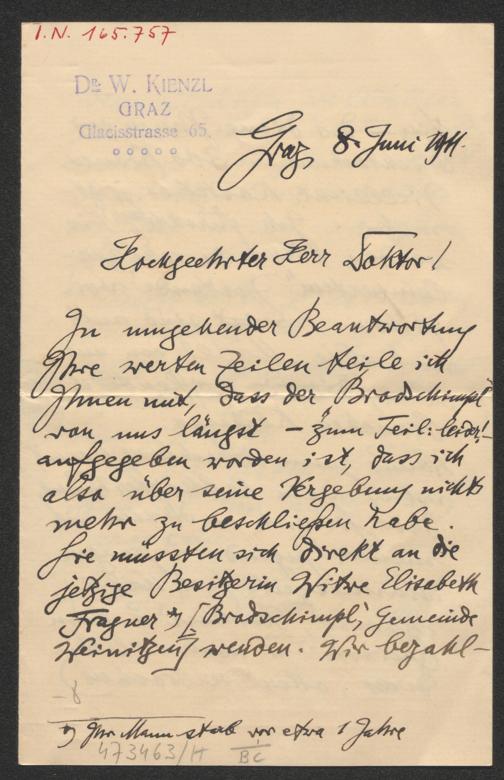 I.N. 165.757
DR. W. KIENZL
GRAZ
Glacisstrasse 65.
Graz, 8. Juni 1911.
Hochgeehrter Herr Doktor!
In umgehender Beantwortung
Ihre werten Zeilen teile ich
Ihnen mit, dass der "Brodschimpl"
von uns längst – zum Teil: leider! –
aufgegeben worden ist, dass ich
also über seine Vergebung nichts
mehr zu beschließen habe.
Sie müssten sich direkt an die
jetzige Besitzerin Witwe Elisabeth
Fragner *) [Brodschimpl, Gemeinde
Weinitzen] wenden. Wir bezahl-
*) Ihr Mann starb vor etwa 1 Jahre
473463/H BC